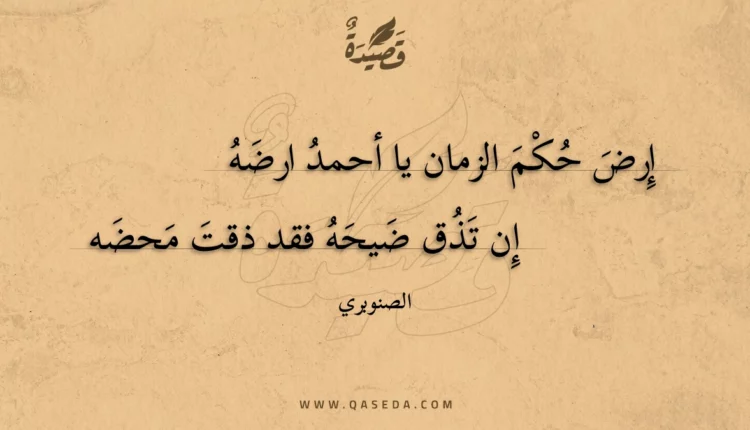 قَصِيْدَةٌ
إِرضَ حُكْمَ الزمان يا أحمدُ ارضَهُ
إِن تَذُق ضَيحَهُ فقد ذقتَ مَحضَه
الصنوبري
WWW.QASEDA.COM